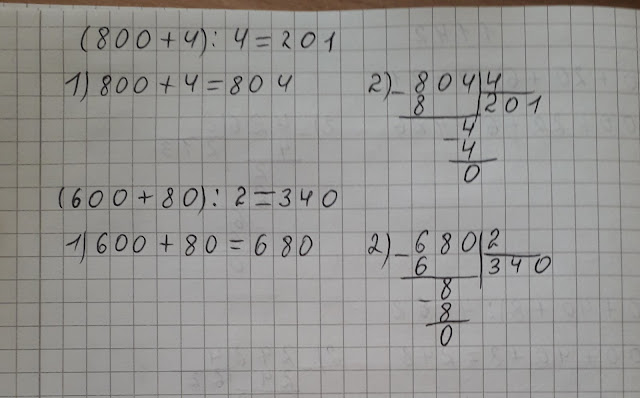 (800+4):4=201
1) 800+4=804
2) - 804 | 4
8 | 201
- 4
4
0
(600+80):2=340
1) 600+80=680
2) - 680 | 2
6 | 340
- 8
8
0